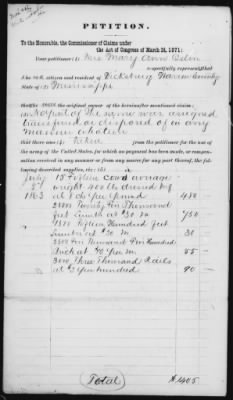 PETITION.
To the Honorable, the Commissioner of Claims under
the Act of Congress of March 3d, 1871:
Your petitioner (1) Mrs Mary Ann
respectfully represents that
he is citizen and resident of Vicksburg Warren County
State of (2) Mississippi
the original owner of the hereinafter mentioned claim;
and no part of the same was assigned
transferred or disposed of in any
manner whatever
that there was (4) taken from the petitioner for the use of
the army of the United States, for which no payment has been made, or compen-
sation received in any manner or from any source for any part thereof, the fol-
lowing described supplies, etc.: (5)
July 15 Fifteen cows average
weight 400 lbs dressed
1863 at 8 cts per pound 480
25000 Twenty Five Thousand
feet Lumber at $30 M 750
1000 Hundred feet
Lumber at $30 M 30
5500 Five Thousand Five Hundred
Brick at $10 per M 55
3000 Three Thousand Rails
at $3 per hundred 90
(Total) $1405